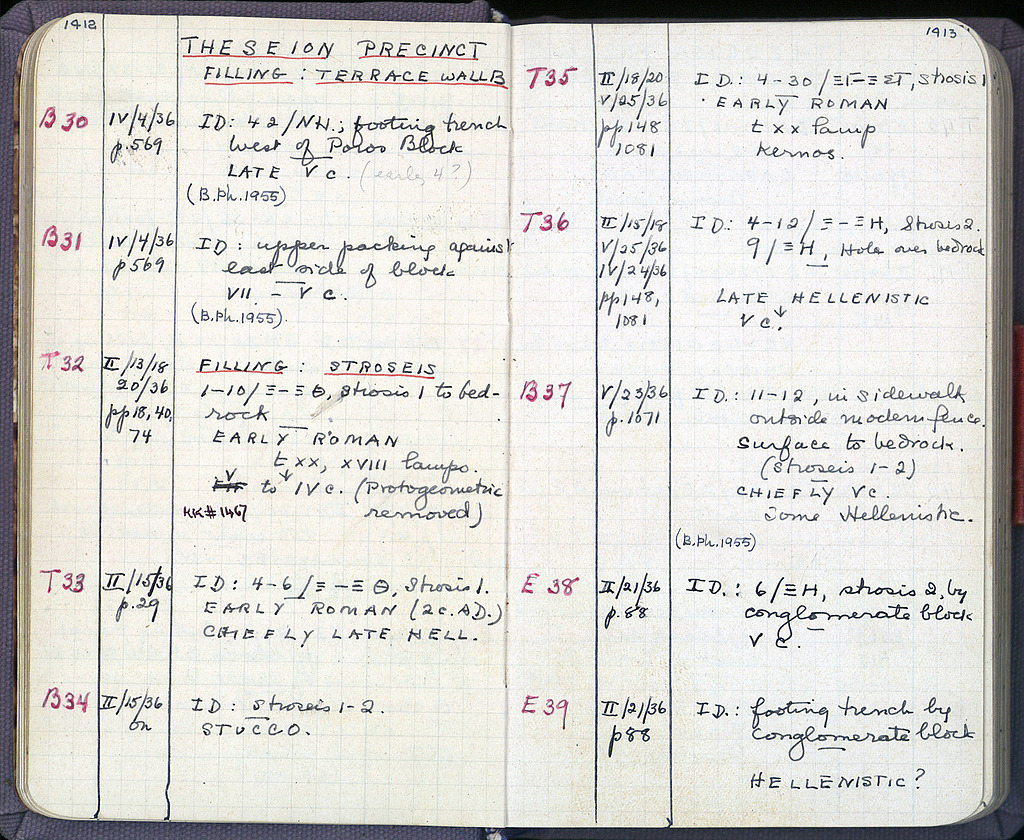 1412
THESEION PRECINCT
FILLING : TERRACE WALL B
B 30 IV/4/36 ID: 42/NH.; footing trench
p.569 west of Poros Block
LATE V c. (early 4?)
(B.Ph.1955)
B31 IV/4/36 ID: upper packing against
p569 east side of block
VII - V c.
(B.Ph.1955).
T32 II/13/18 FILLING : STROSEIS
20/36 1-10/Ξ-Ξ Θ, Strosis 1 to bed-
pp18,40, rock
74 EARLY ROMAN
t xx, XVIII lamps.
V to IV c. (Protogeometric
KK#1467 removed)
T33 II/15/36 ID: 4-6/Ξ-Ξ Θ, Strosis 1.
p.29 EARLY ROMAN (2c. AD.)
CHIEFLY LATE HELL.
B34 II/15/36 ID: Stroseis 1-2.
on STUCCO.
1413
T35 II/18/20 ID.: 4-30/ΞΓ-Ξ ΣΤ, Strosis 1
V/25/36 EARLY ROMAN
pp148 t xx lamp
1081 Kernos.
T36 II/15/18 ID: 4-12/Ξ-ΞH, Strosis 2.
V/25/36 9/ΞH, Hole over bedrock
IV/24/36
pp148, LATE HELLENISTIC
1081 V c.↓
B37 V/23/36 ID.: 11-12, in sidewalk
p.1071 outside modern fence.
Surface to bedrock.
(Stroseis 1-2)
CHIEFLY V c.
Some Hellenistic.
(B.Ph.1955)
E 38 II/21/36 ID.: 6/ΞH, strosis 2, by
p.88 conglomerate block
V c.
E 39 II/21/36 ID.: footing trench by
p88 conglomerate block
HELLENISTIC?